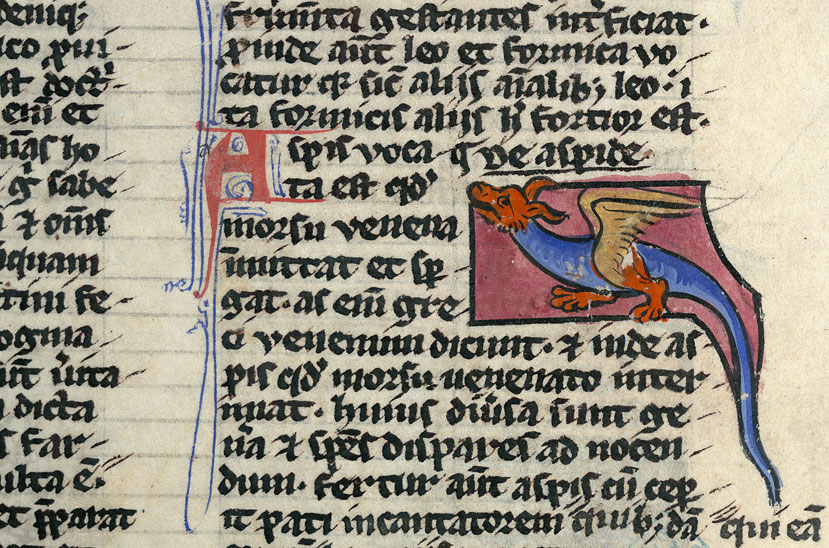 ico pri-
enī et
aīas ho
gͥ sabe
⁊ om̄s
iquam
timi fe-
ogma
a dicta
s far-
ulta ē.
et p̄parat
frum̄ta gestantes int̄ficiat.
ꝓinde aūt leo et formica vo
catur qꝛ sic̄ alijs aīalibꝫ leo. i
ta formicis alijs h̄ fortior est.
Aspis voca q De aspide
ta est qd̓
morsu venena
īmittat et sp̄
gat. as enī gre
ci venenum dicunt. ⁊ inde as
pis qd̓ morsu uenenato inter
imat. huius diūsa sunt ge
n̄a ⁊ sp̄es dispares ad nocen
dum. fertur aūt aspis cū cep̄
it pati incantatorem quibꝫdā qui eā